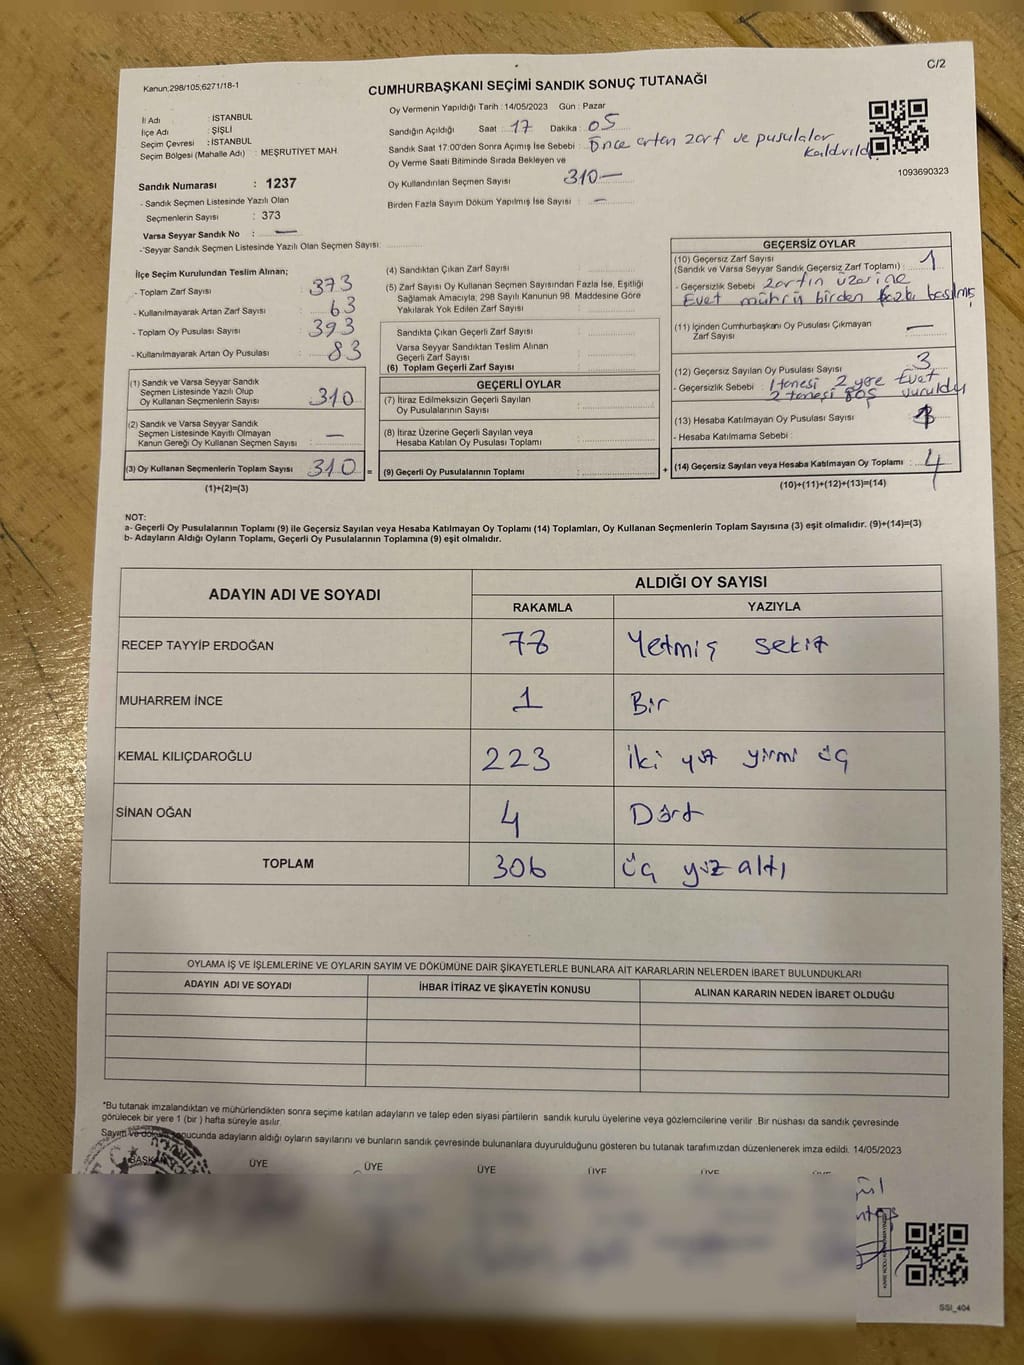 C/2
Kanun,298/105,6271/18-1
CUMHURBAŞKANI SEÇİMİ SANDIK SONUÇ TUTANAĞI
İl Adı : İSTANBUL
İlçe Adı : ŞİŞLİ
Seçim Çevresi : İSTANBUL
Seçim Bölgesi (Mahalle Adı) : MEŞRUTİYET MAH.
Sandık Numarası : 1237
- Sandık Seçmen Listesinde Yazılı Olan
Seçmenlerin Sayısı : 373
Varsa Seyyar Sandık No : —
- Seyyar Sandık Seçmen Listesinde Yazılı Olan Seçmen Sayısı:
Oy Vermenin Yapıldığı Tarih : 14/05/2023 Gün : Pazar
Sandığın Açıldığı Saat : 17 Dakika : 05
Sandık Saat 17:00'den Sonra Açımış İse Sebebi : Önce artan zarf ve pusulalar
kaldırıldı
Oy Verme Saati Bitiminde Sırada Bekleyen ve
Oy Kullandırılan Seçmen Sayısı 310—
Birden Fazla Sayım Döküm Yapılmış İse Sayısı : —
1093690323
İlçe Seçim Kurulundan Teslim Alınan;
- Toplam Zarf Sayısı : 373
- Kullanılmayarak Artan Zarf Sayısı : 63
- Toplam Oy Pusulası Sayısı : 393
- Kullanılmayarak Artan Oy Pusulası : 83
(1) Sandık ve Varsa Seyyar Sandık
Seçmen Listesinde Yazılı Olup
Oy Kullanan Seçmenlerin Sayısı : 310
(2) Sandık ve Varsa Seyyar Sandık
Seçmen Listesinde Kayıtlı Olmayan
Kanun Gereği Oy Kullanan Seçmen Sayısı : —
(3) Oy Kullanan Seçmenlerin Toplam Sayısı : 310 =
(1)+(2)=(3)
(4) Sandıktan Çıkan Zarf Sayısı :
(5) Zarf Sayısı Oy Kullanan Seçmen Sayısından Fazla İse, Eşitliği
Sağlamak Amacıyla, 298 Sayılı Kanunun 98. Maddesine Göre
Yakılarak Yok Edilen Zarf Sayısı :
Sandıkta Çıkan Geçerli Zarf Sayısı :
Varsa Seyyar Sandıktan Teslim Alınan
Geçerli Zarf Sayısı :
(6) Toplam Geçerli Zarf Sayısı :
GEÇERLİ OYLAR
(7) İtiraz Edilmeksizin Geçerli Sayılan
Oy Pusulalarının Sayısı :
(8) İtiraz Üzerine Geçerli Sayılan veya
Hesaba Katılan Oy Pusulası Toplamı :
(9) Geçerli Oy Pusulalarının Toplamı : +
GEÇERSİZ OYLAR
(10) Geçersiz Zarf Sayısı
(Sandık ve Varsa Seyyar Sandık Geçersiz Zarf Toplamı) : 1
- Geçersizlik Sebebi : zarfın üzerine
Evet mührü birden fazla basılmış
(11) İçinden Cumhurbaşkanı Oy Pusulası Çıkmayan
Zarf Sayısı : —
(12) Geçersiz Sayılan Oy Pusulası Sayısı : 3
- Geçersizlik Sebebi : 1 tanesi 2 yere Evet
2 tanesi boş vuruldu
(13) Hesaba Katılmayan Oy Pusulası Sayısı :
- Hesaba Katılmama Sebebi :
(14) Geçersiz Sayılan veya Hesaba Katılmayan Oy Toplamı : 4
(10)+(11)+(12)+(13)=(14)
NOT:
a- Geçerli Oy Pusulalarının Toplamı (9) ile Geçersiz Sayılan veya Hesaba Katılmayan Oy Toplamı (14) Toplamları, Oy Kullanan Seçmenlerin Toplam Sayısına (3) eşit olmalıdır. (9)+(14)=(3)
b- Adayların Aldığı Oyların Toplamı, Geçerli Oy Pusulalarının Toplamına (9) eşit olmalıdır.
ADAYIN ADI VE SOYADI
ALDIĞI OY SAYISI
RAKAMLA YAZIYLA
RECEP TAYYİP ERDOĞAN 78 Yetmiş sekiz
MUHARREM İNCE 1 Bir
KEMAL KILIÇDAROĞLU 223 iki yüz yirmi üç
SİNAN OĞAN 4 Dört
TOPLAM 306 üç yüz altı
OYLAMA İŞ VE İŞLEMLERİNE VE OYLARIN SAYIM VE DÖKÜMÜNE DAİR ŞİKAYETLERLE BUNLARA AİT KARARLARIN NELERDEN İBARET BULUNDUKLARI
ADAYIN ADI VE SOYADI İHBAR İTİRAZ VE ŞİKAYETİN KONUSU ALINAN KARARIN NEDEN İBARET OLDUĞU
*Bu tutanak imzalandıktan ve mühürlendikten sonra seçime katılan adayların ve talep eden siyasi partilerin sandık kurulu üyelerine veya gözlemcilerine verilir. Bir nüshası da sandık çevresinde
görülecek bir yere 1 (bir) hafta süreyle asılır.
Sayım ve döküm sonucunda adayların aldığı oyların sayılarını ve bunların sandık çevresinde bulunanlara duyurulduğunu gösteren bu tutanak tarafımızdan düzenlenerek imza edildi. 14/05/2023
BAŞKAN ÜYE ÜYE ÜYE ÜYE ÜYE
SSI_404